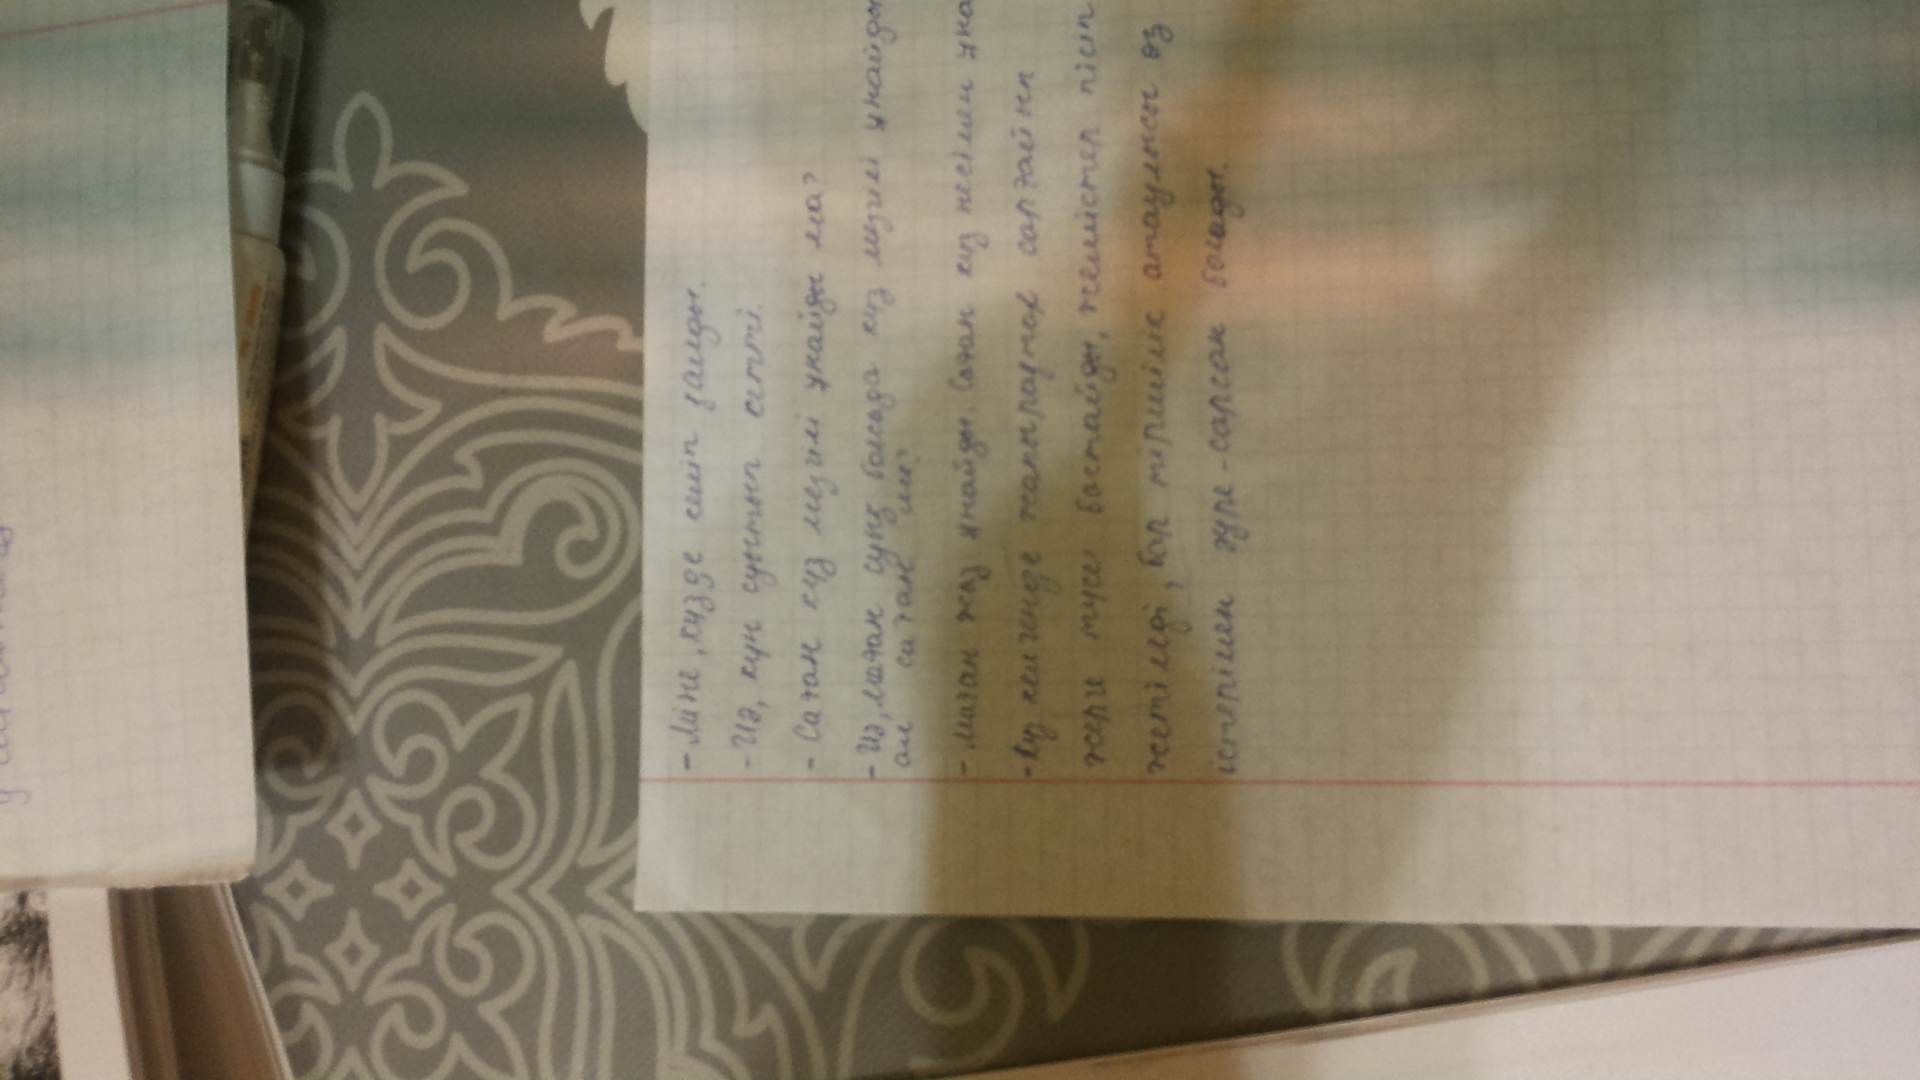 - Міне, күзде келіп қалды.
- Иә, күн суытып кетті.
- Саған күз мезгілі ұнайды ма?
- Иә, маған суық болсада күз мезгілі ұнайды
ал саған ше?
- маған жаз ұнайды. Саған күз несімен ұна
- Күз келгенде жапырақтар сарғайып
жерге түсе бастайды, жемістер пісіп
жетіледі, бар тіршілік атаулысы өз
ісінерімен әуре-сарсаң болады.